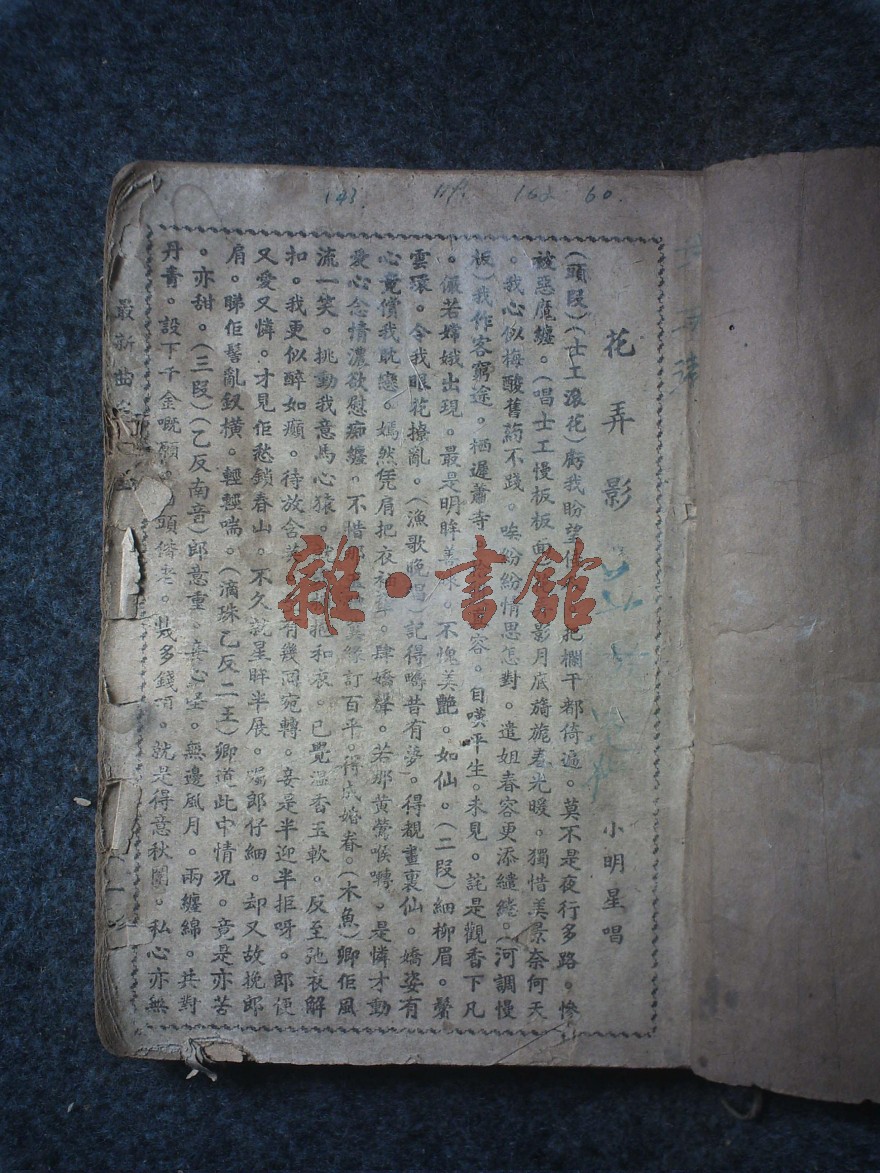 143 162 60.
花弄影 小明星唱
(頭段)(士工滾花)虧我盼望 把欄干都倚遍。莫不是夜行多路。慘
被惡魔纏。(唱士工慢板板面 影月底旖旎春光暖。獨惜美景奈何天
。我心似梅酸舊葯不踐。唉紛紛情思怎對。遣姐春容更添繾綣。(河調慢
板)我作客窮途。栖遲蕭寺 容。自嘆平生。未見。詫是觀香下凡
。儼若嫦娥出現。最是明眸 不愧美艷。如仙。(二段)細柳眉。鬢
雲環。令我眼花撩亂。(漁歌晚唱)記得疇昔有夢。得覩畫裏仙。嬌姿有
心竟償我耽戀。嫣然凭肩把衣袖 肆嬌聲。若那黃鶯喉囀。是憐才動
愛心念情濃欲慰痴纏。不惜 緣訂百年。得成婚眷。(木魚)卿佢風
流一笑。挑動我意馬心猿。 抱和衣。已覺溫香玉軟。反至弛衣解
扣。我更似醉如癲。待放含 有幾回宛轉。妾是半迎半拒呀。郎便
又愛又憐。才見佢愁鎖春山。不久就星眸半展。囑郎仔細。却又故挽郎
肩。睇佢髻亂釵橫。輕輕喘。(滴珠乙反二王)卿道此中情况。竟是亦苦
。亦甜。(三段)(乙反南音)郎意重。妾心堅。無邊風月。兩纏綿。共對
丹青。設下千金嘅願 頭偕老。 多錢 就是得意秋闈。私心亦無
最新曲
雜·書館